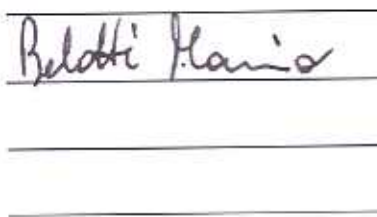 Belotti Mario